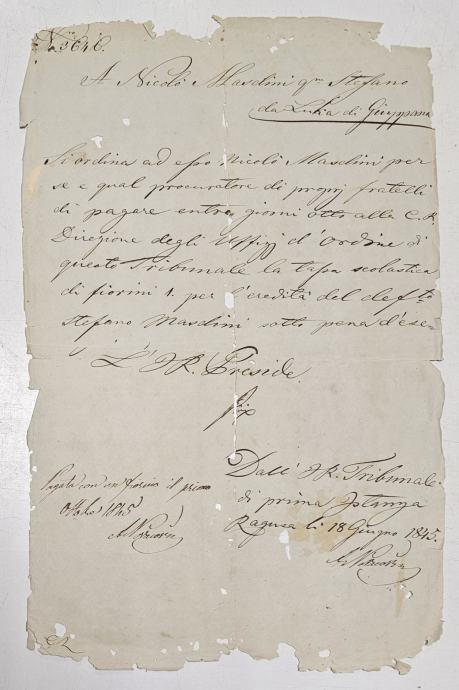 No 3646.
A Nicolò Masdini qm Stefano
da Luka di Giuppana
Si ordina ad esso Nicolò Masdini per
se e qual procuratore di proprj fratelli
di pagare entro giorni otto alla C. R.
Direzione degli Uffizj d'ordine di
questo Tribunale la tassa scolastica
di fiorini 1. per l'eredità del defto
Stefano Masdini sotto pena d'ese-
L'IR. Preside
Dall' IR. Tribunale
di prima Istanza
Ragusa li 18 Giugno 1845.
Pagata con un fiorino il primo
1845